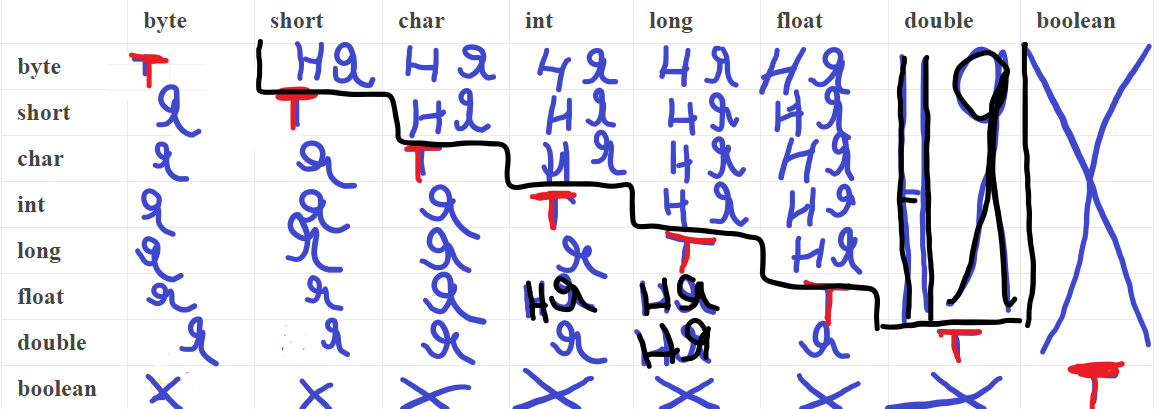 byte short char int long float double boolean
byte Т НЯ НЯ НЯ НЯ НЯ НЯ X
short Я Т НЯ НЯ НЯ НЯ
char Я Я Т НЯ НЯ НЯ
int Я Я Я Т НЯ НЯ
long Я Я Я Я Т НЯ
float Я Я Я НЯ НЯ Т
double Я Я Я Я НЯ Я Т
boolean X X X X X X X Т